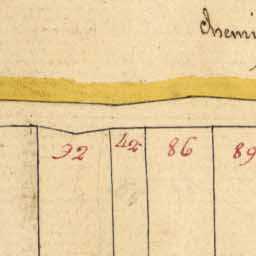 Chemi
92 42 86 89